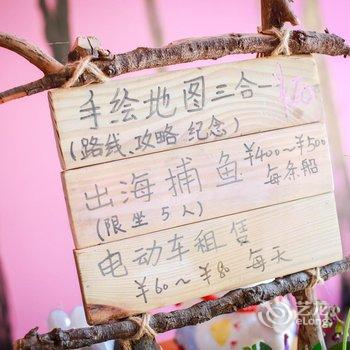 手绘地图三合一 ¥20
(路线、攻略、纪念)
出海捕鱼 ¥400～¥500
(限坐5人) 每条船
电动车租赁
¥60～¥80 每天
艺龙
eLong.com